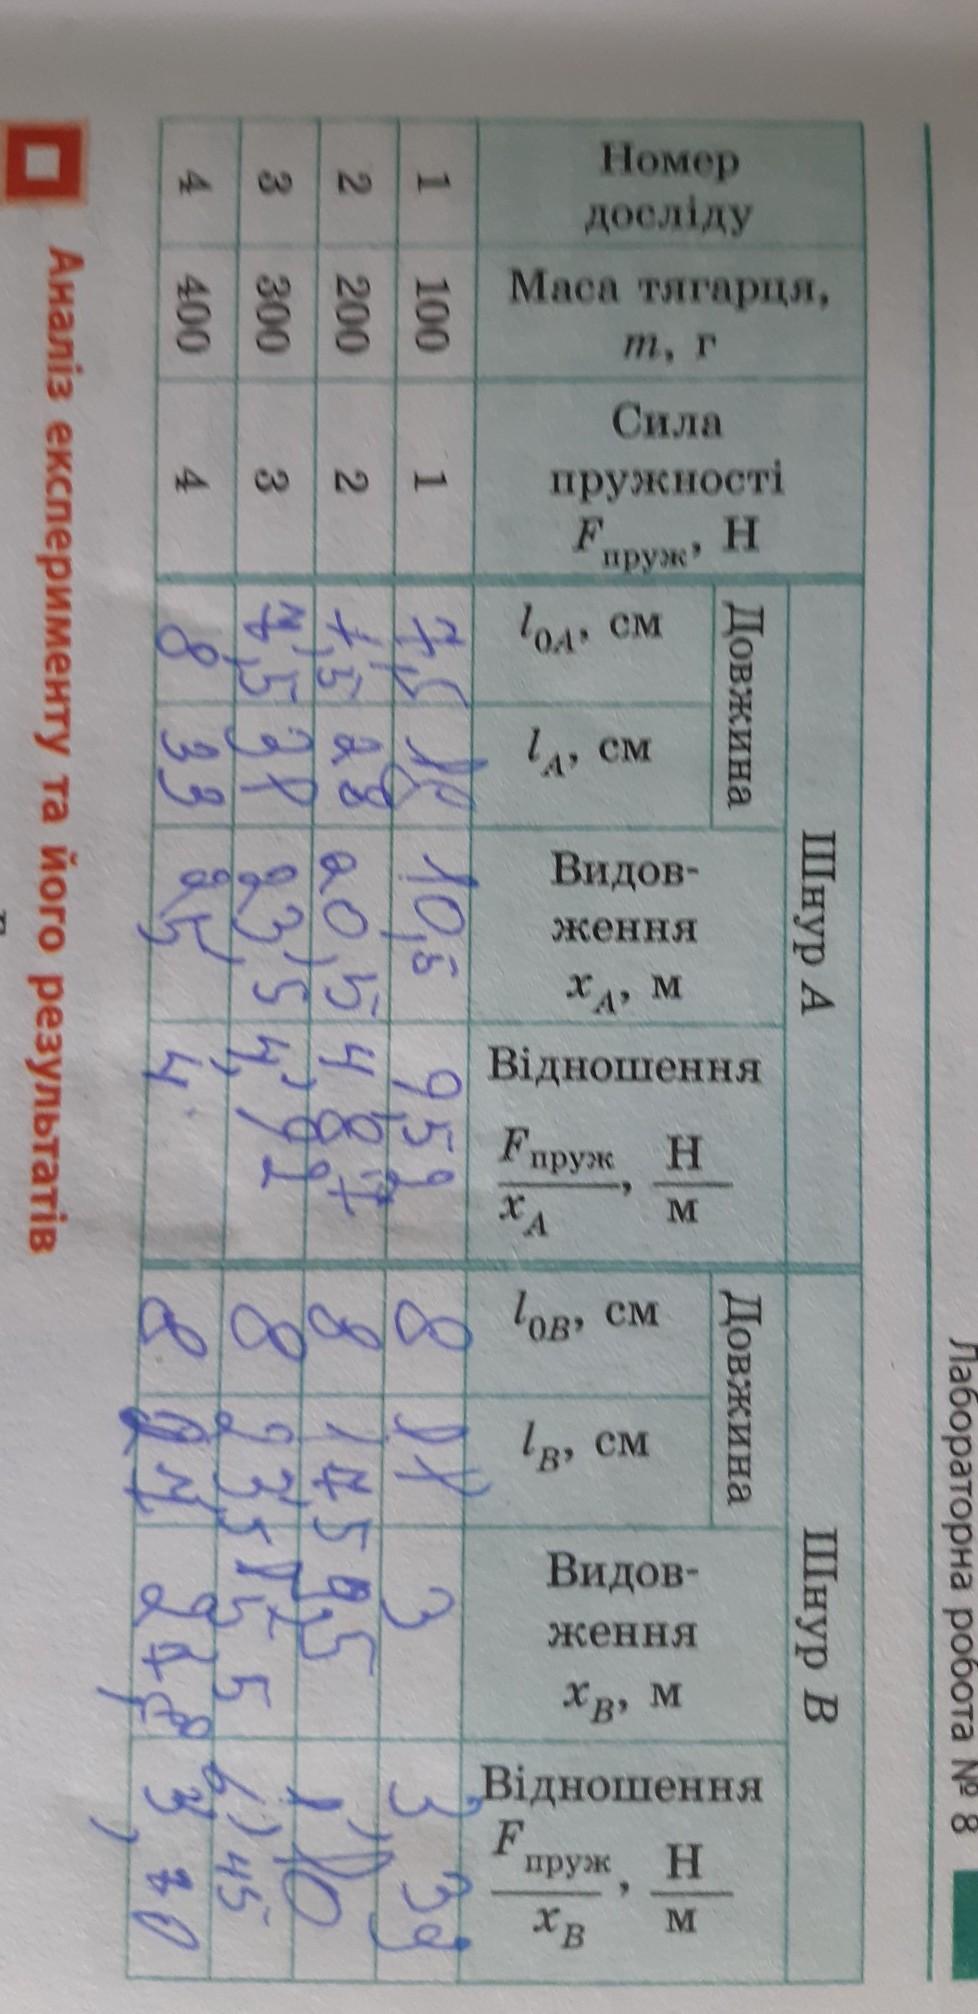 Лабораторна робота № 8
Номер досліду
Маса тягарця, m, г
Сила пружності Fпруж, Н
Шнур A
Довжина
l0A, см
lA, см
Видов-
ження
xA, м
Відношення
Fпруж/xA, Н/м
Шнур B
Довжина
l0B, см
lB, см
Видов-
ження
xB, м
Відношення
Fпруж/xB, Н/м
1 100 1 7,5 18 10,5 9,52 8 11 3
2 200 2 7,5 28 20,5 8 17,5 9,5
3 300 3 7,5 31 23,5 8 23,5 15,5
4 400 4 8 33 25 4 8
Аналіз експерименту та його результатів